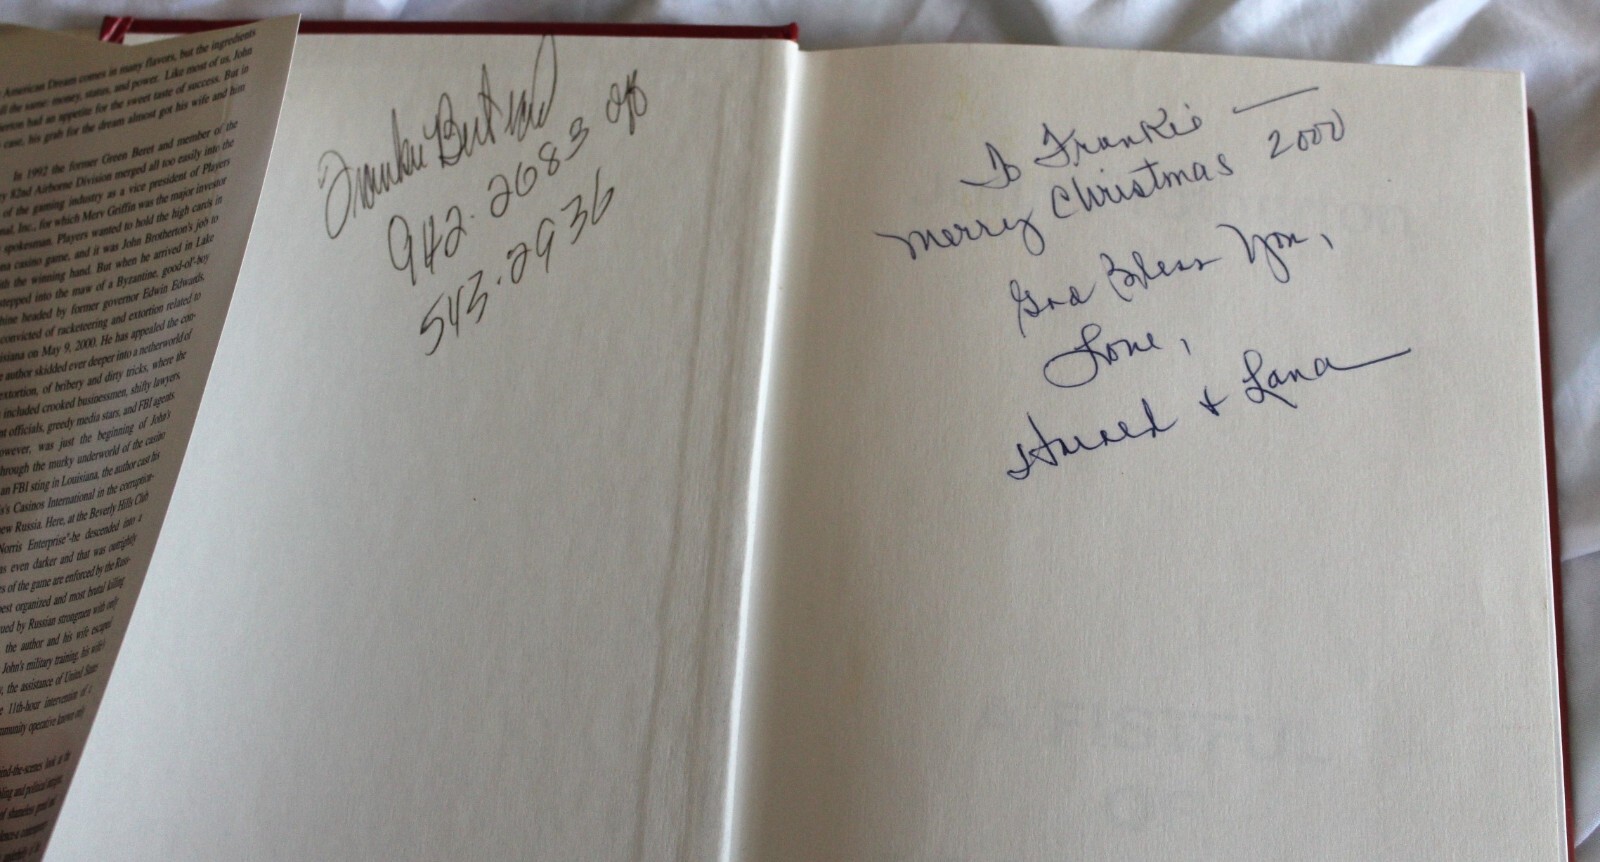 American Dream comes in many flavors, but the ingredients
all the same: money, status, and power. Like most of us, John
Brotherton had an appetite for the sweet taste of success. But in
case, his grab for the dream almost got his wife and him
In 1992 the former Green Beret and member of the
82nd Airborne Division merged all too easily into the
of the gaming industry as a vice president of Players
Inc., for which Merv Griffin was the major investor
spokesman. Players wanted to hold the high cards in
casino game, and it was John Brotherton's job to
the winning hand. But when he arrived in Lake
stepped into the maw of a Byzantine, good-ol'-boy
headed by former governor Edwin Edwards,
convicted of racketeering and extortion related to
on May 9, 2000. He has appealed the con-
author skidded ever deeper into a netherworld of
extortion, of bribery and dirty tricks, where the
included crooked businessmen, shifty lawyers,
officials, greedy media stars, and FBI agents.
was just the beginning of John's
through the murky underworld of the casino
an FBI sting in Louisiana, the author cast his
Casinos International in the corruptor-
new Russia. Here, at the Beverly Hills Club
Norris Enterprise"-he descended into a
even darker and that was outrightly
of the game are enforced by the Rus-
best organized and most brutal killing
by Russian strongmen with only
the author and his wife escaped
John's military training, his wife's
the assistance of United States
11th-hour intervention of a
operative known only
behind-the-scenes look at the
and political
of shameless greed
Frankie Bertrand
942.2683 off
543.2936
To Frankie —
Merry Christmas 2000
God Bless You,
Love,
& Lana